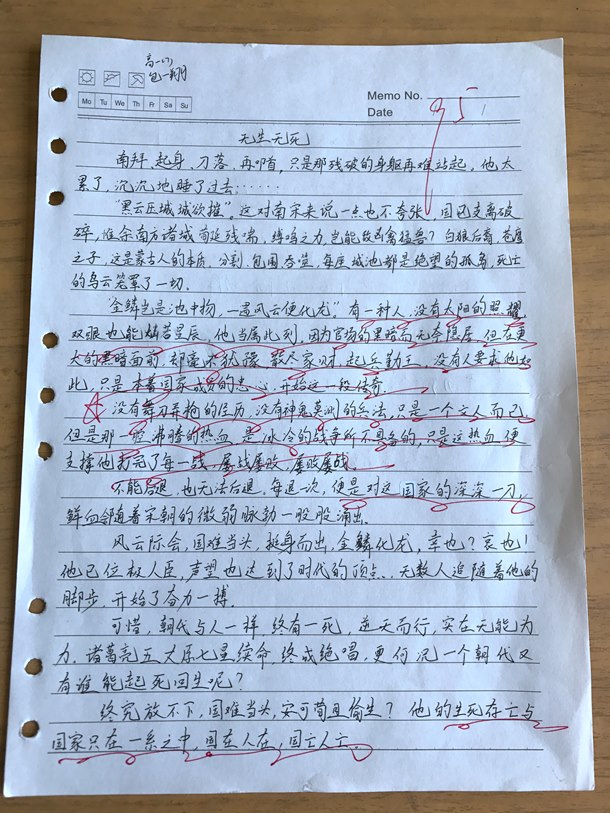 高一(1)
包一翔
Mo Tu We Th Fr Sa Su
Memo No.
Date
95
1
无生无死
南拜、起身、刀落、再叩首，只是那残破的身躯再难站起，他太
累了，沉沉地睡了过去……
“黑云压城城欲摧”，这对南宋来说一点也不夸张，国已支离破
碎，唯余南方诸城苟延残喘，缚鸡之力，岂能敌凶禽猛兽？白狼后裔，苍鹰
之子，这是蒙古人的本质，分割、包围、吞噬，每座城池都是绝望的孤岛，死亡
的乌云笼罩了一切。
“金鳞岂是池中物，一遇风云便化龙”，有一种人，没有太阳的照耀，
双眼也能灿若星辰，他当属此列，因为官场的黑暗而无奈隐居，但在更
大的黑暗面前，却毫不犹豫，散尽家财，起兵勤王，没有人要求他如
此，只是本着国家成员的忠心，开始这一段传奇。
没有舞刀弄枪的经历，没有神鬼莫测的兵法，只是一个文人而已，
但是那一腔沸腾的热血，是冰冷的战争所不具备的，只是这热血，便
支撑他打完了每一战，屡战屡败，屡败屡战。
不能后退，也无法后退，每退一次，便是对这国家的深深一刀，
鲜血都随着宋朝的微弱脉动一股股涌出。
风云际会，国难当头，挺身而出，金鳞化龙，幸也？哀也！
他已位极人臣，声望也达到了时代的顶点，无数人追随着他的
脚步，开始了奋力一搏。
可惜，朝代与人一样，终有一死，逆天而行，实在无能为
力，诸葛亮五丈原七星续命，终成绝唱，更何况一个朝代，又
有谁能起死回生呢？
终究放不下，国难当头，安可苟且偷生？他的生死存亡与
国家只在一系之中，国在人在，国亡人亡。